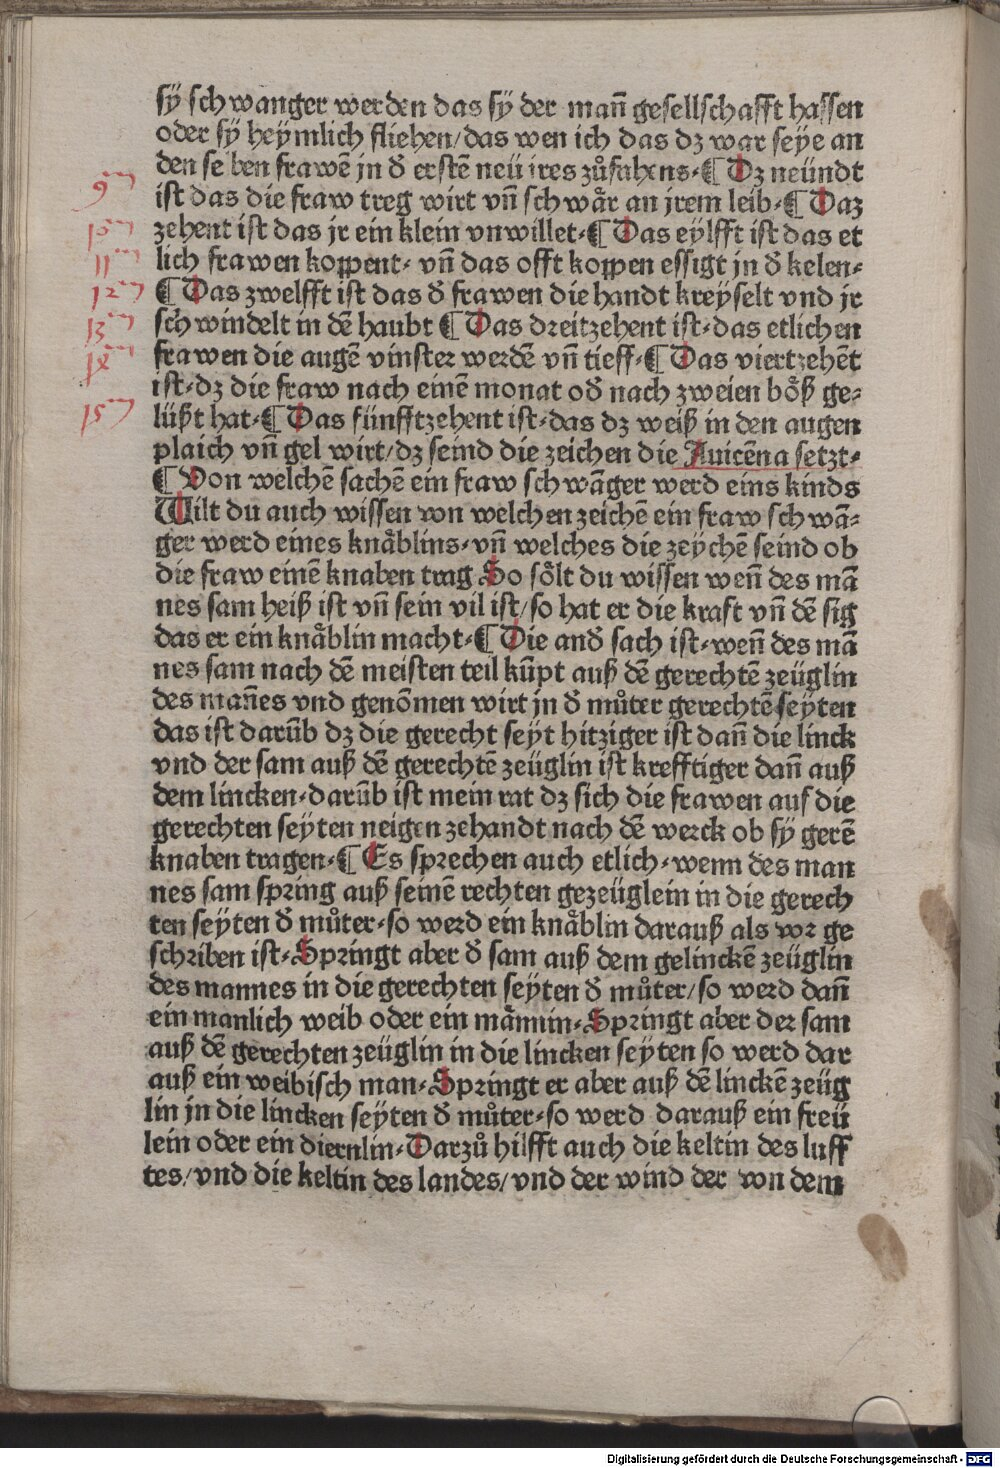 sÿ schwanger werden das sÿ der mañ gesellschafft hassen
oder sÿ heÿmlich fliehen/das wen ich das dz war seÿe an
den selben frawē jn d̄ erstē neü ires zůfahens·¶ Dz neündt
9
ist das die fraw treg wirt vñ schwår an jrem leib·¶ Daz
10
zehent ist das jr ein klein vnwillet·¶ Das eÿlfft ist das et
11
lich frawen koppent· vñ das offt koppen essigt jn d̄ kelen·
12
¶ Das zwelfft ist das d̄ frawen die handt kreÿselt vnd jr
13
schwindelt in dē haubt ¶ Das dreitzehent ist·das etlichen
14
frawen die augē vinster werdē vñ tieff·¶ Das viertzehēt
ist·dz die fraw nach einē monat od̄ nach zweien bo̊ß ge⸗
15
lüßt hat·¶ Das fünfftzehent ist·das dz weiß in den augen
plaich vñ gel wirt/dz seind die zeichen die Auicēna setzt·
¶ Von welchē sachē ein fraw schwāger werd eins kinds
Wilt du auch wissen von welchen zeichē ein fraw schwā⸗
ger werd eines knåblins·vñ welches die zeÿchē seind ob
die fraw einē knaben trag So so̊lt du wissen weñ des mā
nes sam heiß ist vñ sein vil ist/so hat er die kraft vñ dē sig
das er ein knåblin macht·¶ Die and̄ sach ist·weñ des mā
nes sam nach dē meisten teil kūpt auß dē gerechtē zeüglin
des mañes vnd genōmen wirt jn d̄ můter gerechtē seÿten
das ist darūb dz die gerecht seyt hitziger ist dañ die linck
vnd der sam auß dē gerechtē zeüglin ist krefftiger dañ auß
dem lincken·darūb ist mein rat dz sich die frawen auf die
gerechten seÿten neigen zehandt nach dē werck ob sÿ gerē
knaben tragen·¶ Es sprechen auch etlich·wenn des man
nes sam spring auß seinē rechten gezeüglein in die gerech
ten seÿten d̄ můter·so werd ein knåblin darauß als vor ge
schriben ist·Springt aber d̄ sam auß dem gelinckē zeüglin
des mannes in die gerechten seÿten d̄ můter/so werd dañ
ein manlich weib oder ein månnin·Springt aber der sam
auß dē gerechten zeüglin in die lincken seÿten so werd dar
auß ein weibisch man·Springt er aber auß dē linckē zeüg
lin jn die lincken seÿten d̄ můter·so werd darauß ein freü
lein oder ein diernlin·Darzů hilfft auch die keltin des luff
tes/vnd die keltin des landes/vnd der wind der von dem
Digitalisierung gefördert durch die Deutsche Forschungsgemeinschaft - DFG